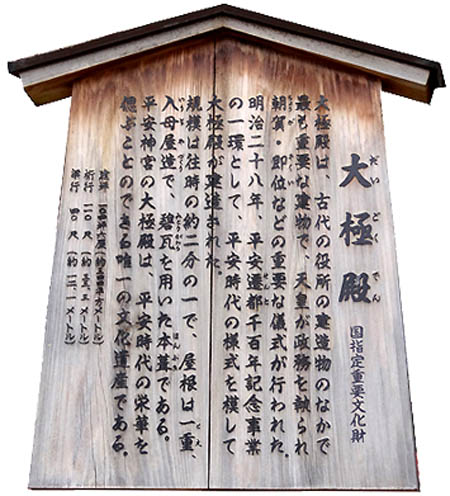 大極殿
だいごくでん
国指定重要文化財
大極殿は、古代の役所の建造物のなかで
最も重要な建物で、天皇が政務を執られ
朝賀・即位などの重要な儀式が行われた。
明治二十八年、平安遷都千百年記念事業
の一環として、平安時代の様式を模して
大極殿が建造された。
規模は往時の約二分の一で、屋根は一重、
入母屋造で、碧瓦を用いた本葺である。
平安神宮の大極殿は、平安時代の栄華を
偲ぶことのできる唯一の文化遺産である。
桁行 一一〇尺
梁行 四〇尺（約一二・一メートル）